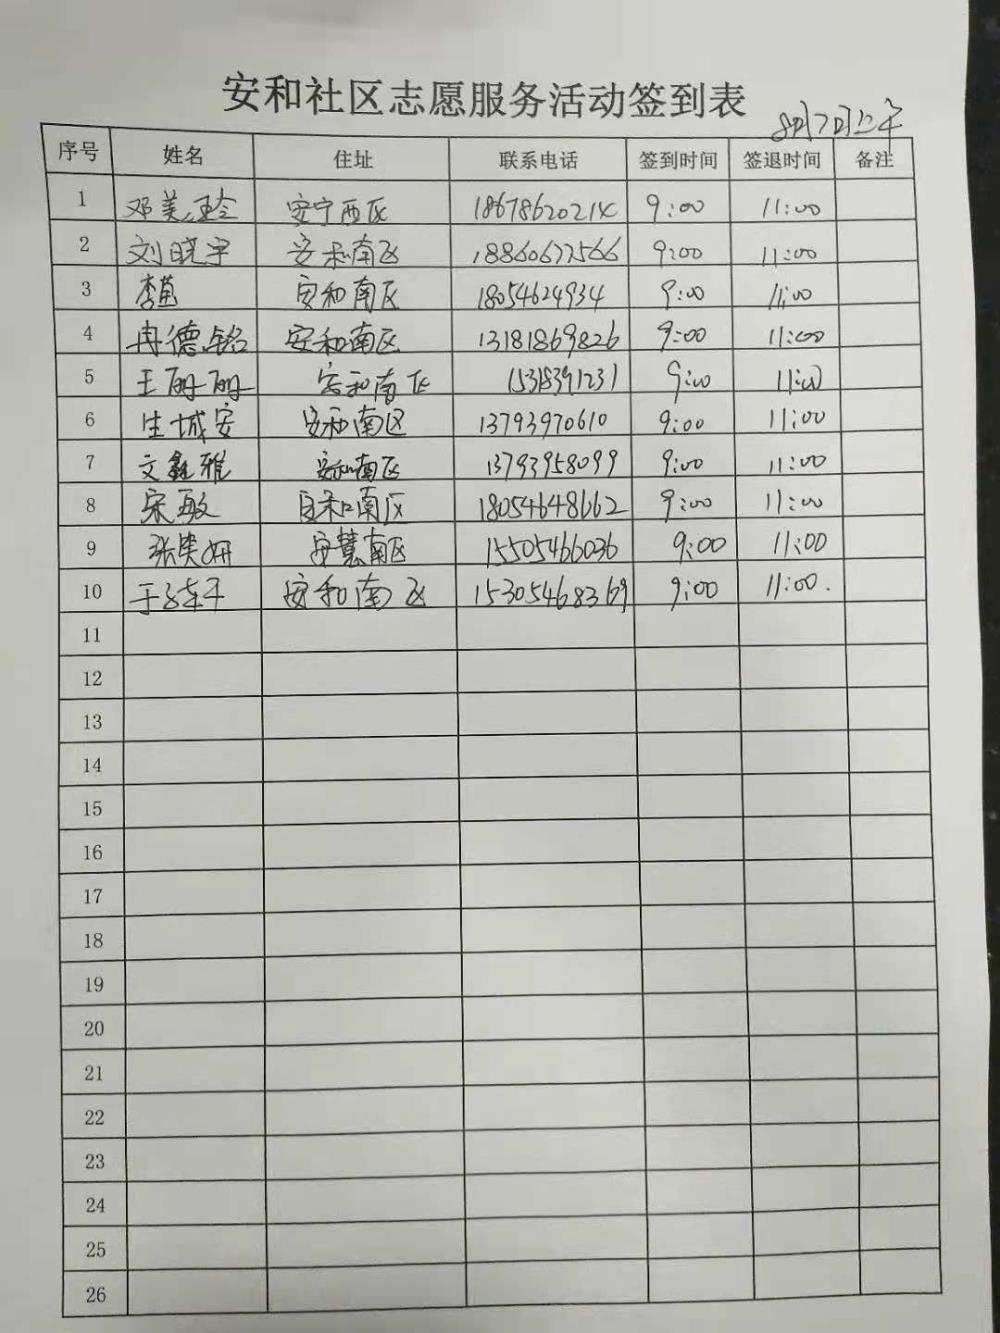 安和社区志愿服务活动签到表
8月7日上午
序号 姓名 住址 联系电话 签到时间 签退时间 备注
1 邓美玲 安宁西区 9:00 11:00
2 刘晓宇 安和南区 18860672566 9:00 11:00
3 李苗 安和南区 18054624934 9:00 11:00
4 冉德铭 安和南区 13181869826 9:00 11:00
5 王丽丽 安和南区 15318391231 9:00 11:00
6 生城安 安和南区 13793970610 9:00 11:00
7 文鑫雅 安和南区 13793958099 9:00 11:00
8 宋敏 安和南区 18054648662 9:00 11:00
9 张 妍 安慧南区 15505466036 9:00 11:00
10 于 安和南区 15305468369 9:00 11:00.
11
12
13
14
15
16
17
18
19
20
21
22
23
24
25
26